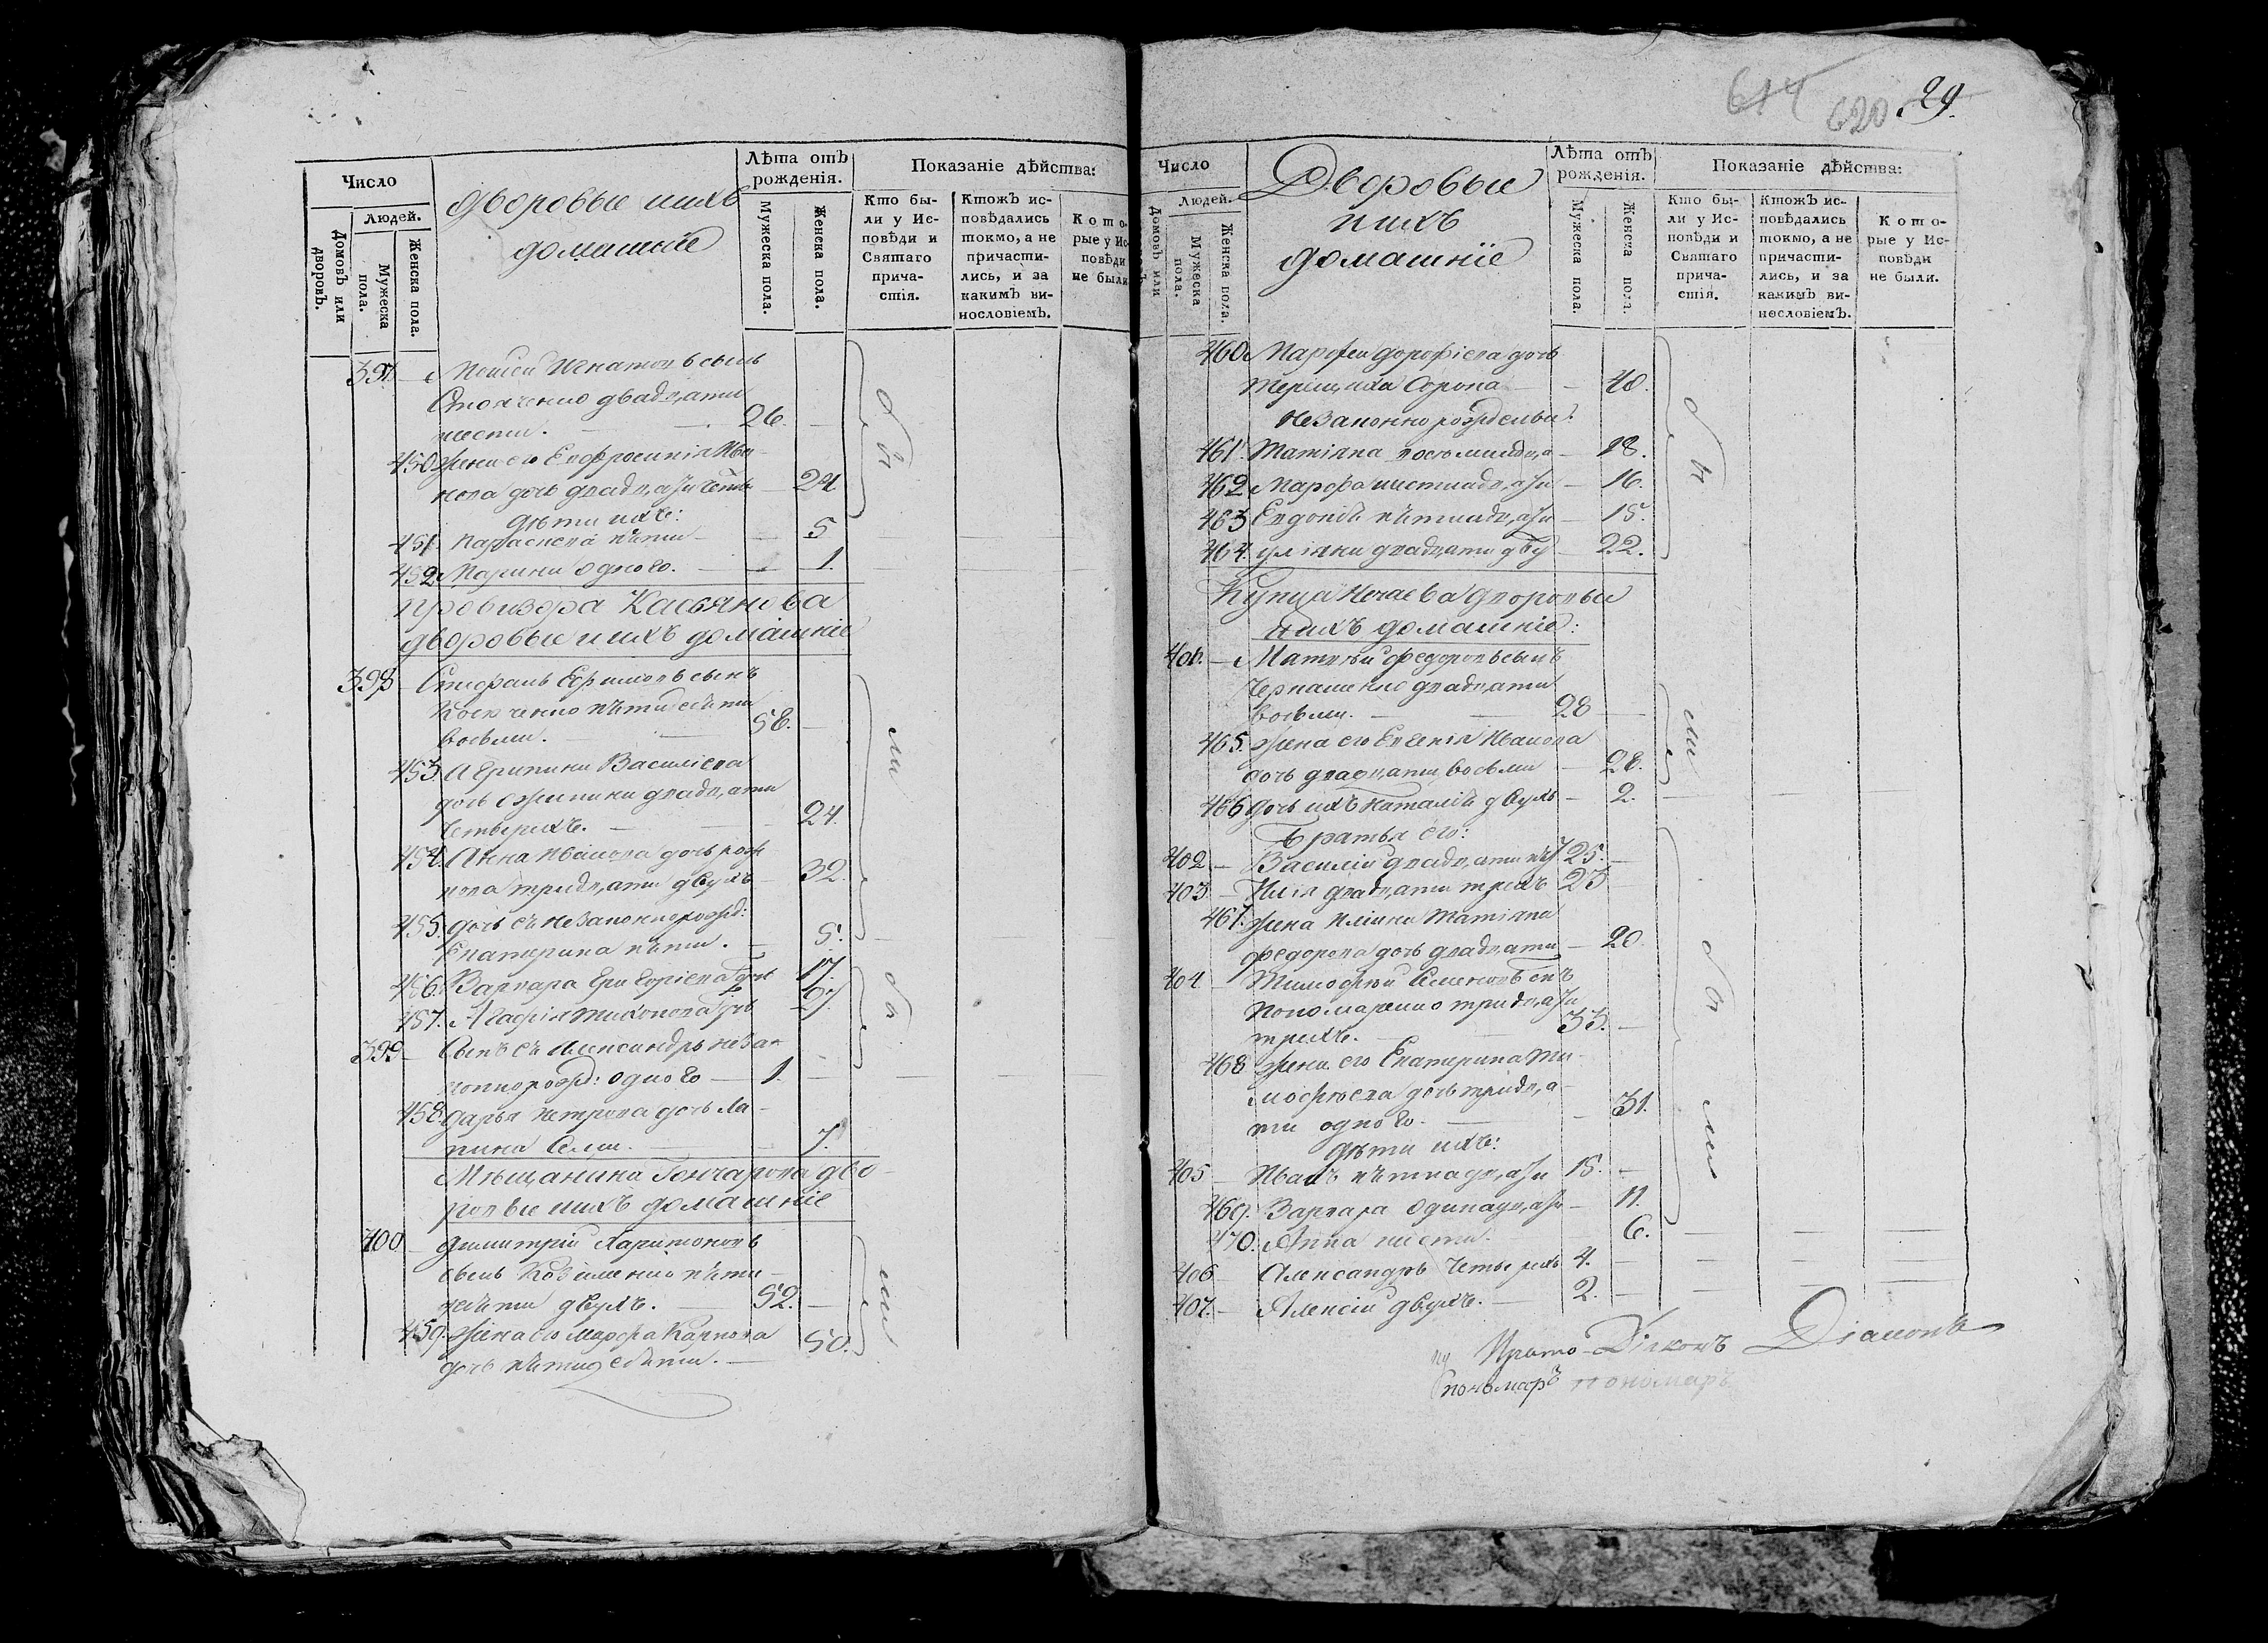 Число
Людей.
Домовъ или дворовъ.
Мужеска пола.
Женска пола.
дворовые иихъ
домашніе
Лѣта отъ рожденія.
Мужеска пола.
Женска пола.
Показаніе дѣйства:
Кто бы-
ли у Ис-
повѣди и
Святаго
прича-
стія.
Ктожъ ис-
повѣдались
токмо, а не
причасти-
лись, и за
какимъ ви-
нословіемъ.
Кото-
рые у Ис-
повѣди
не были.
397. Моисей Игнатовъ сынъ
двадцати
шести. 26.
450 жена его Евфросинія Ива-
нова дочь двадцати четы 24
дѣти ихъ:
451. Параскева пяти 5
452 Марина одного. 1.
провизора Касьянова
дворовые иихъ домашніе
398 Стефанъ Ефимовъ сынъ
пятидесяти
восьми. 58.
453. Агрипина Василіева
дочь двадцати
четырехъ. 24.
454. Анна Иванова дочь
тридцати двухъ 32.
455. дочь еъ незаконнорожд:
Екатерина пяти. 5.
456. Варвара Григоріева дочь 17.
457. Агафія Тихонова дочь 27.
399 Сынъ еъ Александръ незак
оннорожд: одного 1.
458. Дарья Петрова дочь Ла-
пина семи. 7.
Мѣщанина Гончарова дво-
ровые иихъ домашніе
400 Димитрій Харитоновъ
сынъ пяти-
десяти двухъ. 52.
459. жена его Марфа Карпова
дочь пятидесяти. 50.
ли
бы
ли
614 620 29.
Число
Людей.
Домовъ или
Мужеска пола.
Женска пола.
Дворовые
иихъ
домашніе
Лѣта отъ рожденія.
Мужеска пола.
Женска пола.
Показаніе дѣйства:
Кто бы-
ли у Ис-
повѣди и
Святаго
прича-
стія.
Ктожъ ис-
повѣдались
токмо, а не
причасти-
лись, и за
какимъ ви-
нословіемъ.
Кото-
рые у Ис-
повѣди
не были.
460 Марфа Дорофіева дочь
Терещиха Сорока 40.
незаконно рожденыи:
461. Татіяна восьмнадца 18.
462 Марфа шестнадцати 16.
463 Евдокія пятнадцати 15.
464. Уліяна двадцати дву 22.
Купца Нечаева дворовые
иихъ домашніе:
401. Матвѣй Федоровъ сынъ
двадцати
восьми. 28
465. жена его Евгенія Иванова
дочь двадцати восьми 28.
466 дочь ихъ Наталія двухъ 2.
Братья его:
402 Василій двадцати пят 25.
403. Илія двадцати трехъ 23
467. жена Иліина Татіяна
Федорова дочь двадцати 20.
404 Тимофей Семеновъ снъ
Пономаренко тридцати
трехъ. 33.
468 жена его Екатерина Ти-
мофеева дочь тридца-
ти одного. 31.
дѣти ихъ:
405 Иванъ пятнадцати 15.
469. Варвара одинадцати 11.
470. Анна шести. 6.
406 Александръ четырехъ 4.
407. Алексій двухъ. 2.
Прото-Діяконъ
пономаръ пономаръ